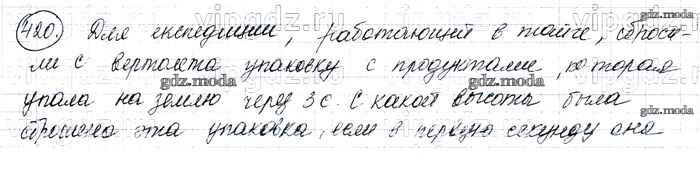 420. Для експедиции, работающей в тайге, сброси-
ли с вертолета упаковку с продуктами, которая
упала на землю через 3 с. С какой высоты была
сброшена эта упаковка, если в первую секунду она